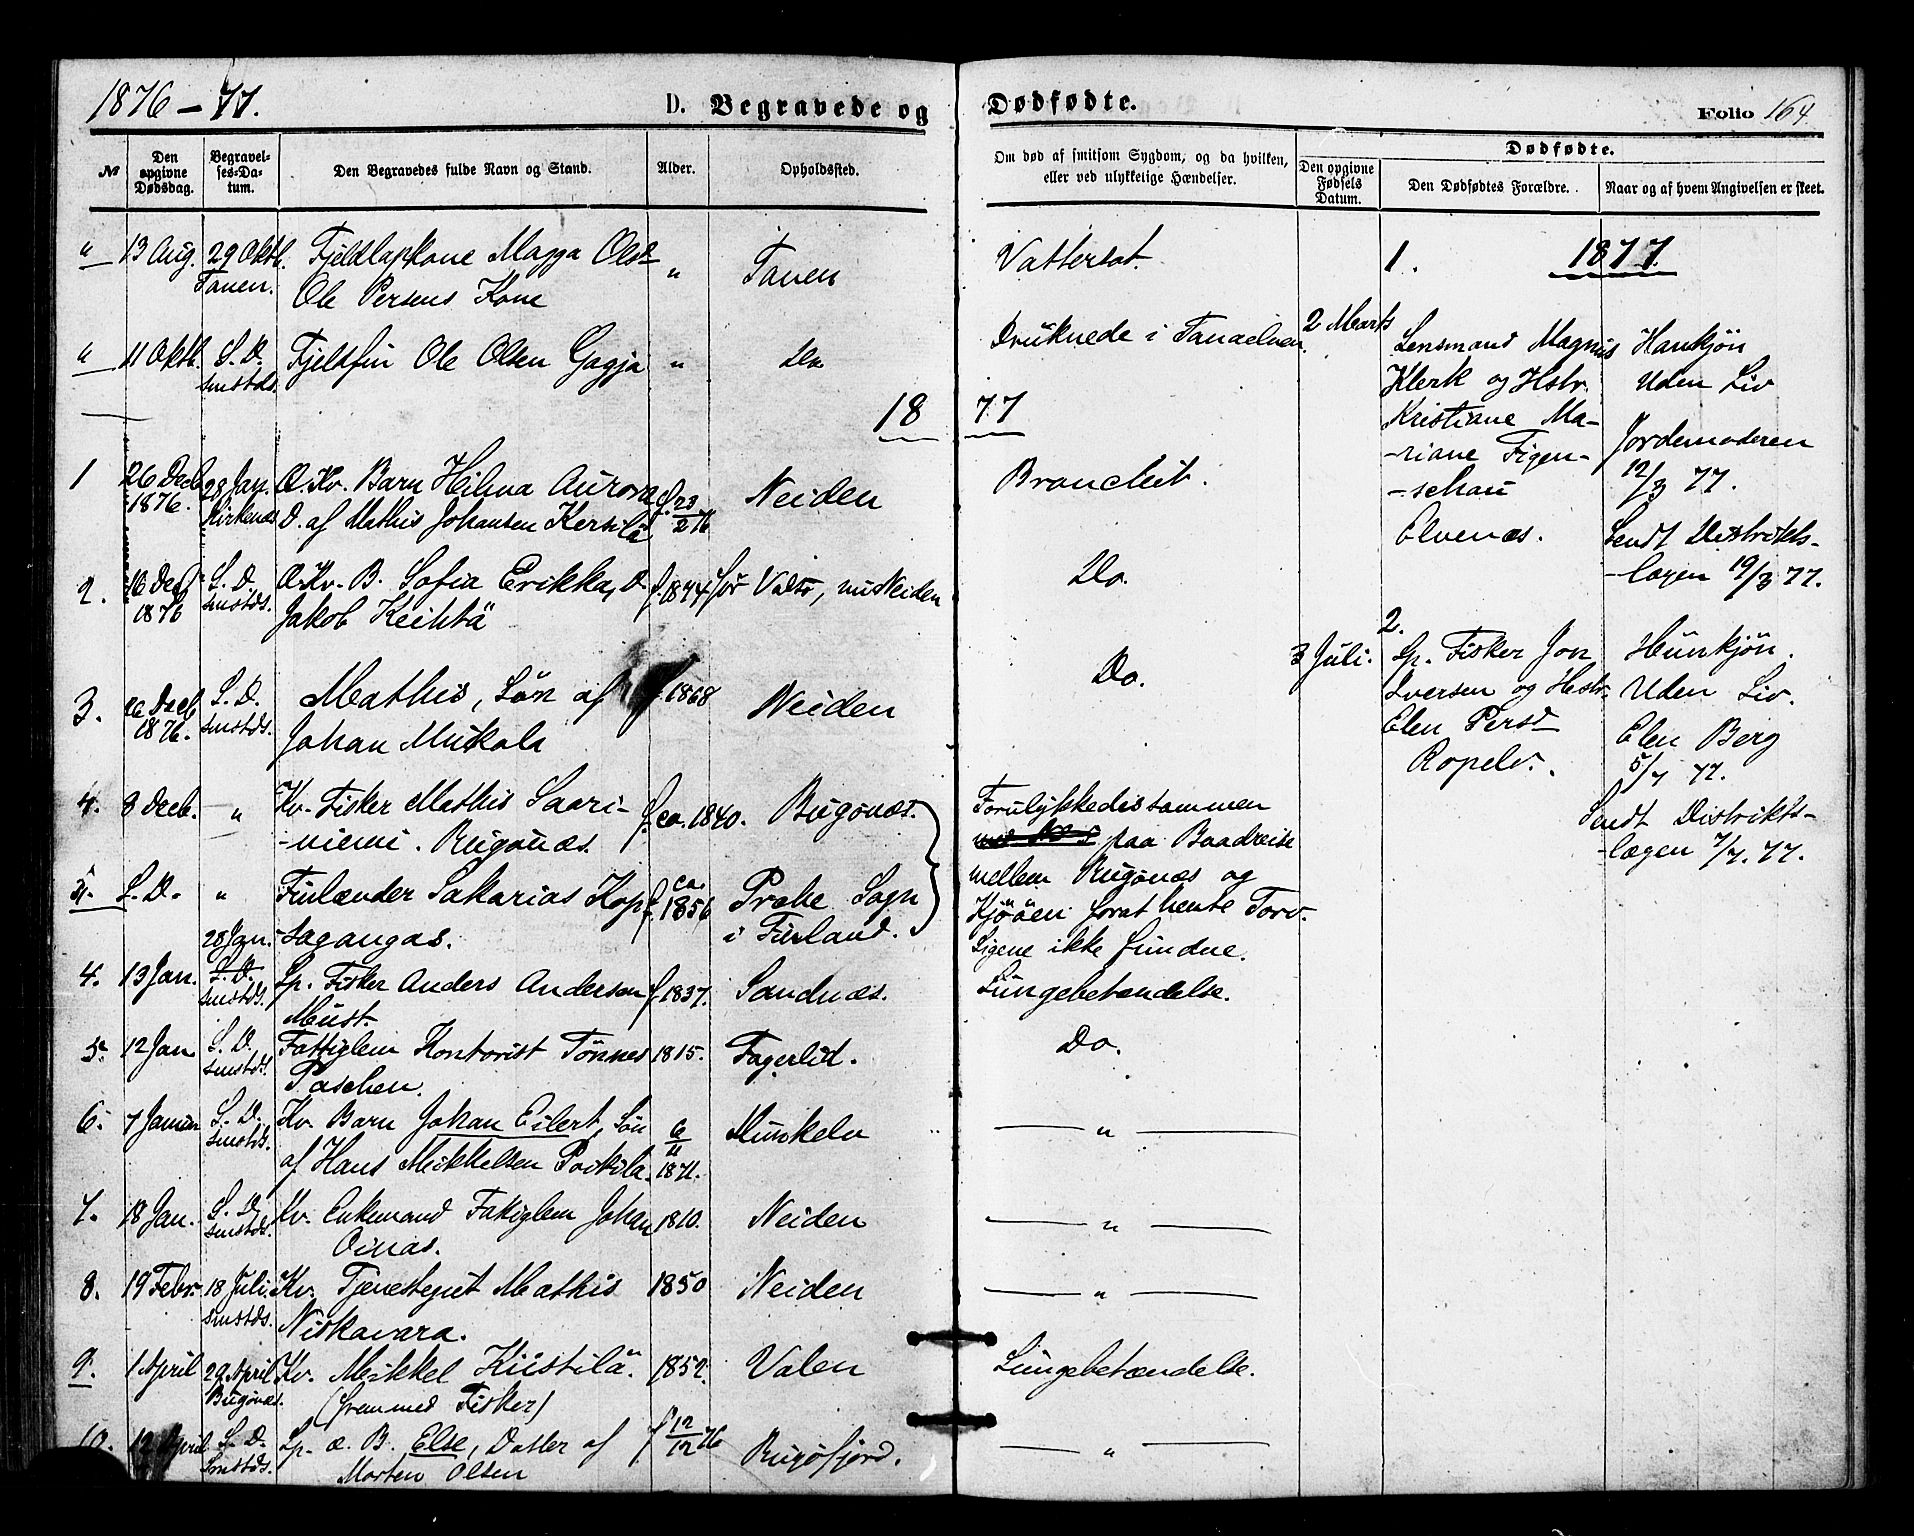 1876-77.
D. Begravede og
Dødfødte.
Folio 164
№
Den opgivne Dødsdag.
Begravelses-Datum.
Den Begravedes fulde Navn og Stand.
Alder.
Opholdssted.
Om død af smitsom Sygdom, og da hvilken, eller ved ulykkelige Hændelser.
Dødfødte.
Den opgivne Fødsels Datum.
Den Dødfødtes Forældre.
Naar og af hvem Angivelsen er skeet.
" 13 Aug. 29 Oktb. Fjeldlapkone Magga Olsd " Tanen Vattersot.
Tanen. Ole Persens Kone
" 11 Oktb. S. D. Fjeldfin Ole Olsen Gagja " Do Druknede i Tanaelven
smstds.
18 77
1 26 Decb 28 Jan. Æ. Kv. Barn Hilma Aurora f. 23/2 76 Neiden Bronchit.
1876. Kirkenæs D. af Mathis Johansen
2. 16 Decb S. D. Æ. Kv. B. Sofia Erikka, D. f. 1874 før Vadsø, nu Neiden Do.
1876 smstds. Jakob Keihtä
3. 26 Decb S. D. Mathis, Søn af f. 1868 Neiden Do.
1876. smstds. Johan Mukala
4. 8 Decb. " Kv. Fisker Mathis Saari- f. ca. 1840. Bugønæs. Forulykkedis sammen
-niemi. Bugønæs. paa Baadreise
5. S. D. " Finlænder Sakarias Kop- f. ca. 1856 Sogn mellem Bugønæs og
-sagangas. i Finland. Kjøøen forat hente Torv.
Ligene ikke fundne.
4. 13 Jan. 28 Jan. Lp. Fisker Anders Andersen f. 1837. Sandnæs. Lungebetændelse.
smstds. Must.
5. 12 Jan. S. D. Fattiglem Kontorist Tønnes 1815. Fagerlid. Do.
smstds. Paschen.
6. 7 Januar S. D. Kv. Barn Johan Eilert, Søn 6/11 1871. Munkelv "
smstds. af Hans Mikkelsen Poikila.
7. 18 Jan. S. D. Kv. Enkemand Fattiglem Johan 1810. Neiden "
smstds. Oinas.
8. 19 Febr. 18 Juli Kv. Tjenestegut Mathis 1850 Neiden "
smstds. Niskavara.
9. 1 April 29 April Kv. Mikkel Kustilä. 1852. Valen Lungebetændelse.
Bugønæs. (fremmed Fisker)
10. 12 April S. D. Lp. æ. B. Else, Datter af f. 12/12 76 Bugøfjord. "
smstds. Morten Olsen
1. 1877.
2 Marts Lensmand Magnus Hankjøn
Klerk og Hstr. Uden Liv
Kristiane Ma- Jordemoderen
-riane Figen- 12/3 77.
-schau Sendt Distrikts-
Elvenæs. -lægen 19/3 77.
2.
3 Juli. Lp. Fisker Jon Hunkjøn.
Iversen og Hstr. Uden Liv.
Elen Persd Elen Berg
Ropelv. 5/7 77.
Sendt Distrikts-
-lægen 7/7. 77.